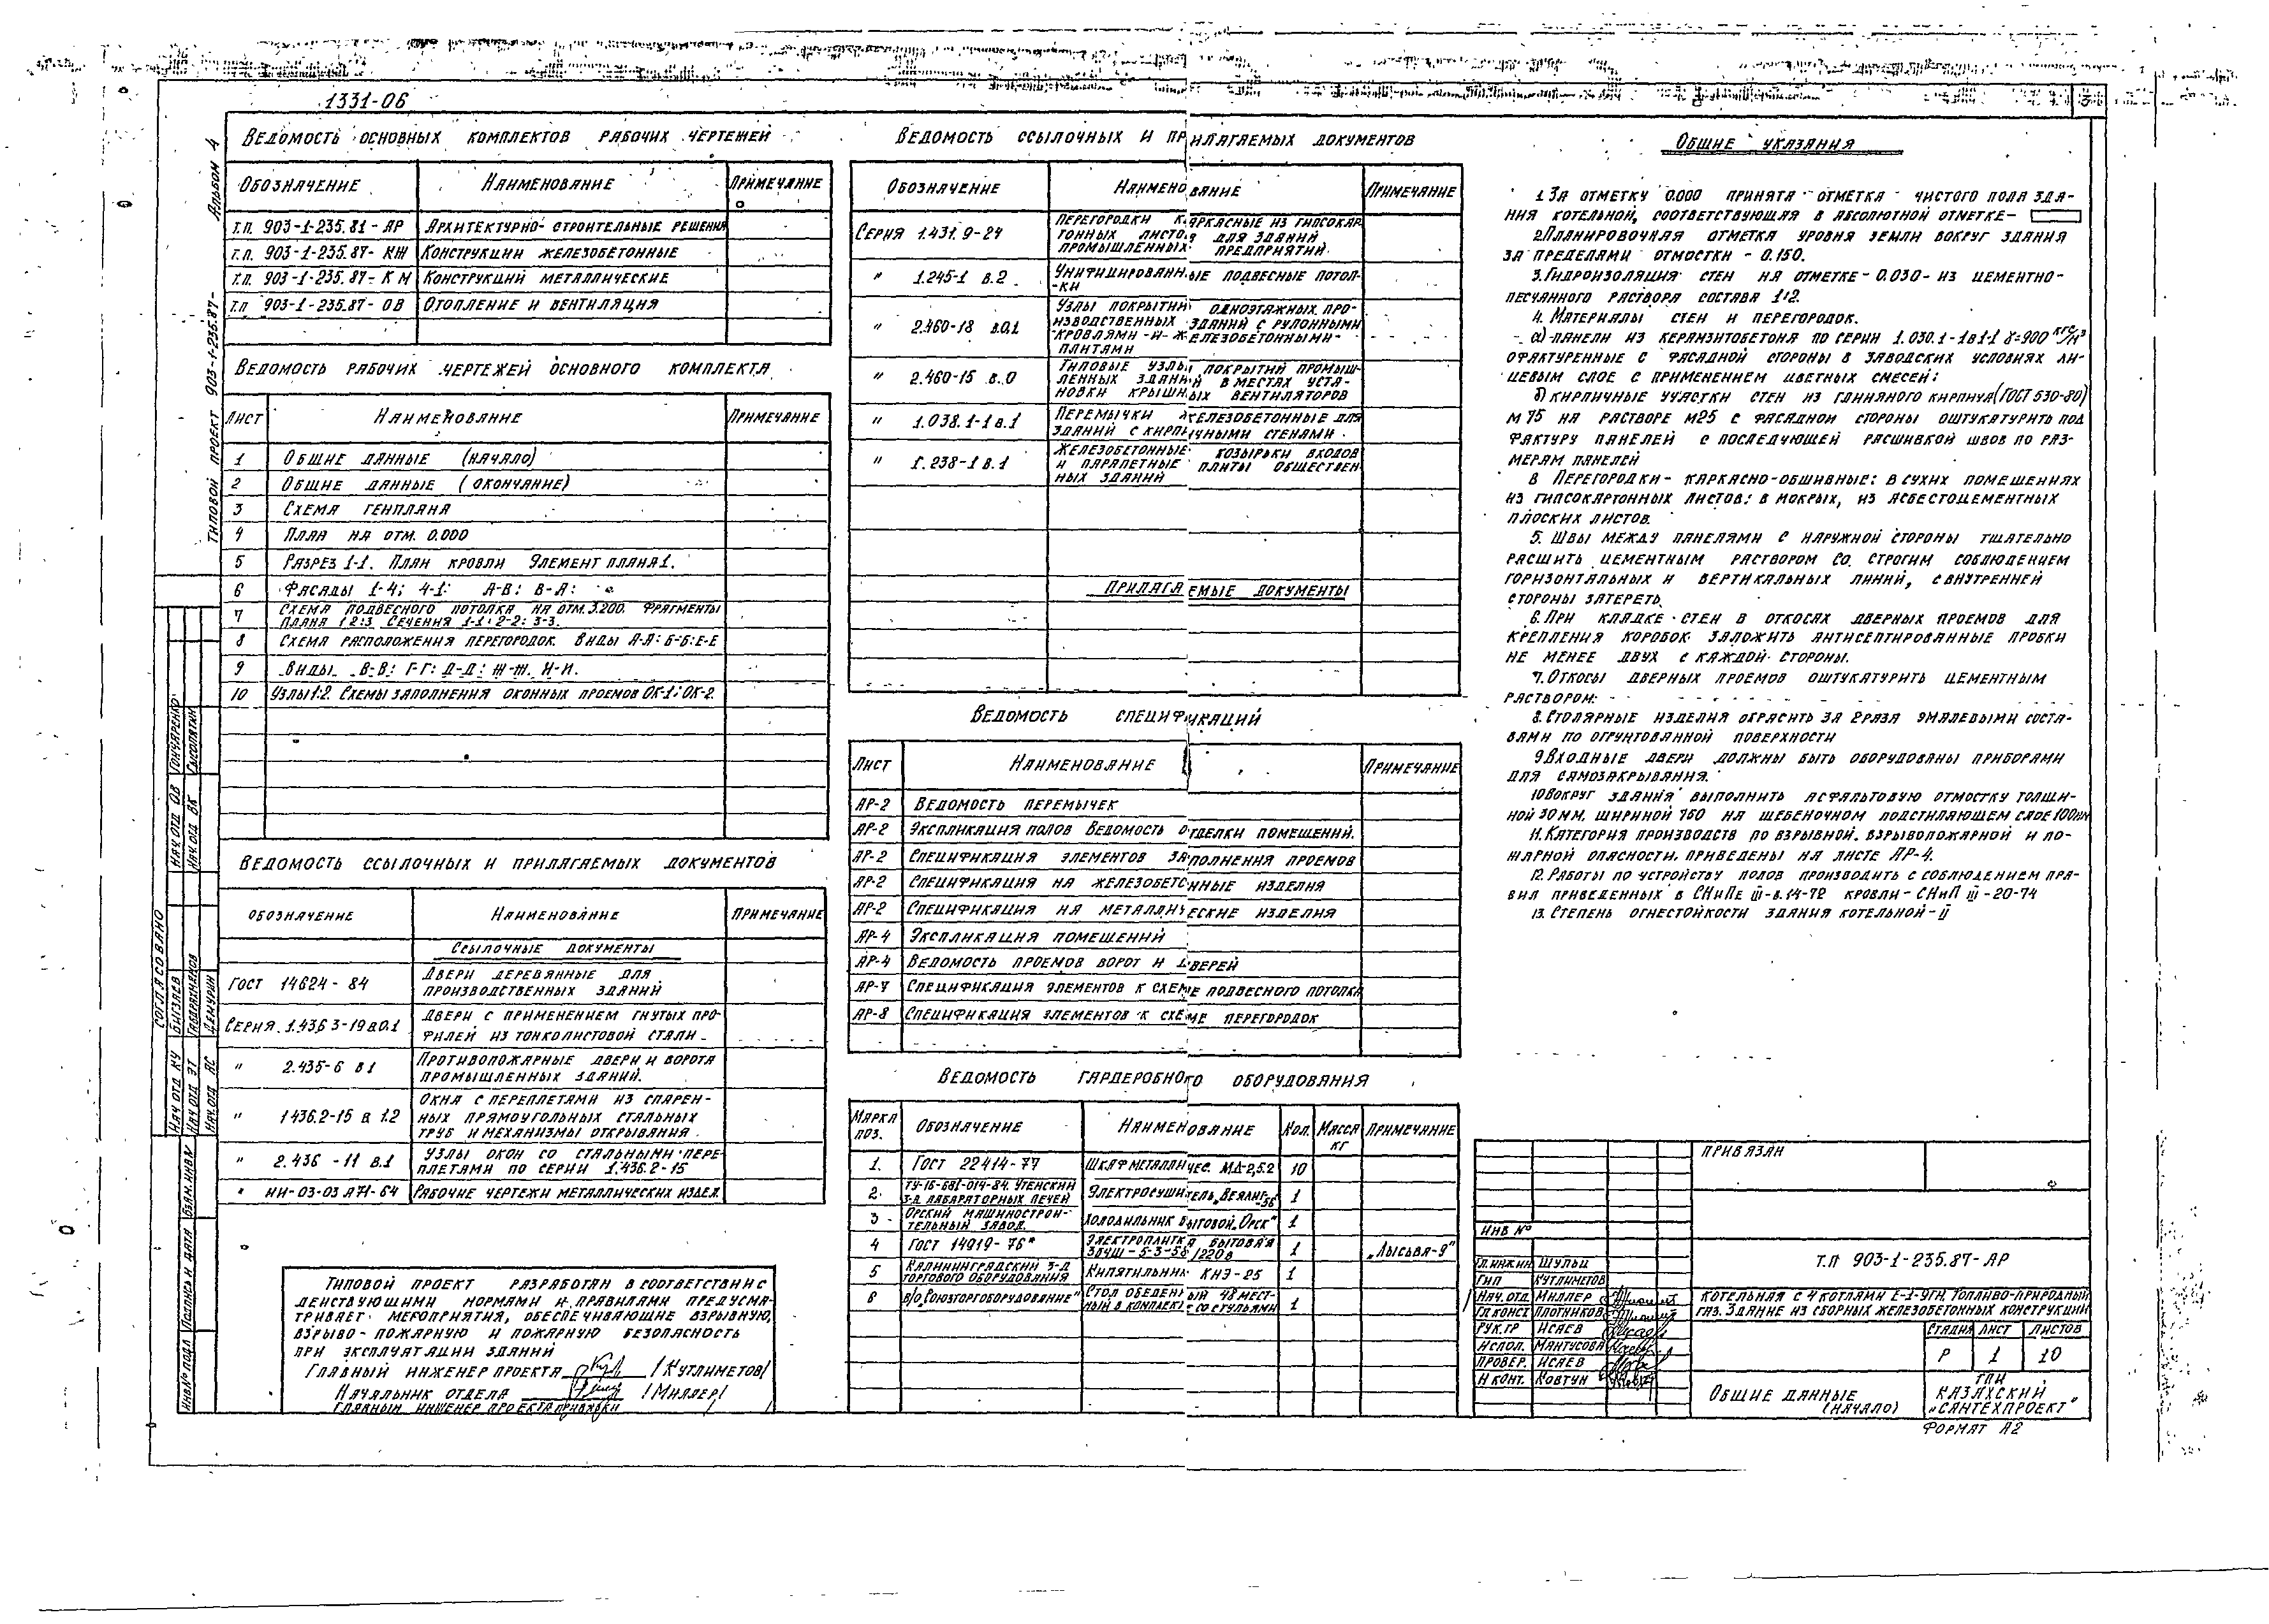 1331-06
Альбом 4
Типовой проект 903-1-235.87-
Ведомость основных комплектов рабочих чертежей
Обозначение Наименование Примечание
Т.п. 903-1-235.81-АР Архитектурно-строительные решения
Т.п. 903-1-235.87-КЖ Конструкции железобетонные
Т.п. 903-1-235.87-КМ Конструкций металлические
Т.п 903-1-235.87-ОВ Отопление и вентиляция
Ведомость рабочих чертежей основного комплекта
Лист Наименование Примечание
1 Общие данные (начало)
2 Общие данные (окончание)
3 Схема генплана
4 План на отм. 0.000
5 Разрез 1-1. План кровли Элемент плана 1.
6 Фасады 1-4; 4-1; А-В; В-А;
7 Схема подвесного потолка на отм.3.200. Фрагменты
плана 1 2; 3. Сечения 1-1; 2-2; 3-3.
8 Схема расположения перегородок. Виды А-А; Б-Б; Е-Е
9 Виды В-В; Г-Г; Д-Д; Ж-Ж. И-И.
10 Узлы 1;2. Схемы заполнения оконных проемов ОК-1; ОК-2
Ведомость ссылочных и прилагаемых документов
Обозначение Наименование Примечание
Ссылочные документы
ГОСТ 14624-84 Двери деревянные для
производственных зданий
Серия 1.436 3-19 в.0.1 Двери с применением гнутых про-
филей из тонколистовой стали
" 2.435-6 в.1 Противопожарные двери и ворота
промышленных зданий.
" 1436.2-15 в. 1.2 Окна с переплетами из спарен-
ных прямоугольных стальных
труб и механизмы открывания.
" 2.436-11 в.1 Узлы окон со стальными пере-
плетами по серии 1.436.2-15
" ИИ-03-03 А71-64 Рабочие чертежи металлических издел.
Типовой проект разработан в соответствии с
действующими нормами и правилами предусма-
тривает мероприятия, обеспечивающие взрывную,
взрыво-пожарную и пожарную безопасность
при эксплуатации зданий
Главный инженер проекта /Кутлиметов/
Начальник отдела /Миллер/
Главный инженер проекта привязки
Ведомость ссылочных и прилагаемых документов
Обозначение Наименование Примечание
Серия 1.431.9-24 Перегородки каркасные из гипсокар
тонных листов для зданий
промышленных предприятий.
" 1.245-1 в.2 Унифицированные подвесные потол-
-ки
" 2.460-18 в.0.1 Узлы покрытий одноэтажных про-
изводственных зданий с рулонными
кровлями и железобетонными
плитами
" 2.460-15 в.0 Типовые узлы покрытий промыш-
ленных зданий в местах уста-
новки крышных вентиляторов
" 1.038.1-1 в.1 Перемычки железобетонные для
зданий с кирпичными стенами.
" Г.238-1 в.1 Железобетонные козырьки входов
и парапетные плиты обществен
ных зданий
Прилагаемые документы
Ведомость спецификаций
Лист Наименование Примечание
АР-2 Ведомость перемычек
АР-2 Экспликация полов Ведомость отделки помещений.
АР-2 Спецификация элементов заполнения проемов
АР-2 Спецификация на железобетонные изделия
АР-2 Спецификация на металлические изделия
АР-4 Экспликация помещений
АР-4 Ведомость проемов ворот и дверей
АР-7 Спецификация элементов к схеме подвесного потолка
АР-8 Спецификация элементов к схеме перегородок
Ведомость гардеробного оборудования
Марка поз. Обозначение Наименование Кол. Масса кг Примечание
1. ГОСТ 22414-77 Шкаф металличес. МД-2,5.2 10
2. ТУ-16-681-014-84. Утенский
з-д лабараторных печей Электросушитель 1
3 Орский машинострои-
тельный завод. Холодильник бытовой „Орск" 1
4 ГОСТ 14919-76* Электроплитка бытовая
/220 в 1 „Лысьва-9"
5 Калининградский з-д
торгового оборудования Кипятильник КНЭ-25 1
6 в/о „Союзторгоборудование" Стол обеденный 4х мест-
ный в комплекте со стульями 1
Общие указания
1 За отметку 0.000 принята отметка чистого пола зда-
ния котельной, соответствующая в абсолютной отметке-
2.Планировочная отметка уровня земли вокруг здания
за пределами отмостки - 0.150.
3.Гидроизоляция стен на отметке-0.030- из цементно-
песчанного раствора состава 1:2.
4. Материалы стен и перегородок.
а)-панели из керамзитобетона по серии 1.030.1-1 в.1-1 γ=900 кгс/м³
офактуренные с фасадной стороны в заводских условиях ли-
цевым слое с применением цветных смесей;
б) кирпичные участки стен из глиняного кирпича (ГОСТ 530-80)
М 75 на растворе М25 с фасадной стороны оштукатурить под
фактуру панелей с последующей расшивкой швов по раз-
мерам панелей
в Перегородки- каркасно-обшивные: в сухих помещениях
из гипсокартонных листов; в мокрых, из асбестоцементных
плоских листов.
5. Швы между панелями с наружной стороны тщательно
расшить цементным раствором со строгим соблюдением
горизонтальных и вертикальных линий, с внутренней
стороны затереть.
6. При кладке стен в откосах дверных проемов для
крепления коробок заложить антисептированные пробки
не менее двух с каждой стороны.
7. Откосы дверных проемов оштукатурить цементным
раствором.
8. Столярные изделия окрасить за 2 раза эмалевыми соста-
вами по огрунтованной поверхности
9.Входные двери должны быть оборудованы приборами
для самозакрывания.
10Вокруг здания выполнить асфальтовую отмостку толщи-
ной 30 мм. шириной 750 на щебеночном подстилающем слое 100мм
11. Категория производств по взрывной. взрывопожарной и по-
жарной опасности, приведены на листе АР-4.
12. Работы по устройству полов производить с соблюдением пра-
вил приведенных в СНиПе III-в.14-72 кровли-СНиП III-20-74
13. Степень огнестойкости здания котельной-II
Привязан
Инв №
Т.п 903-1-235.87-АР
Гл.инжин Шульц
ГИП Кутлиметов
Нач. отд Миллер
Гл.конст Плотников
Рук.гр Исаев
Испол. Мантусова
Провер. Исаев
Н конт. Ковтун
Котельная с 4 котлами Е-1-9ГН. Топливо-природный
газ. Здание из сборных железобетонных конструкций
Стадия Лист Листов
Р 1 10
Общие данные
(начало)
ГПИ
Казахский
„Сантехпроект"
Формат А2
Согласовано
Нач отд КИ Бигзяев
Нач отд ЭТ
Нач.отд АС Демурин
Нач отд ОВ Гончаренко
Нач.отд ВК
Инв№ подл Подпись и дата Взам.инв№